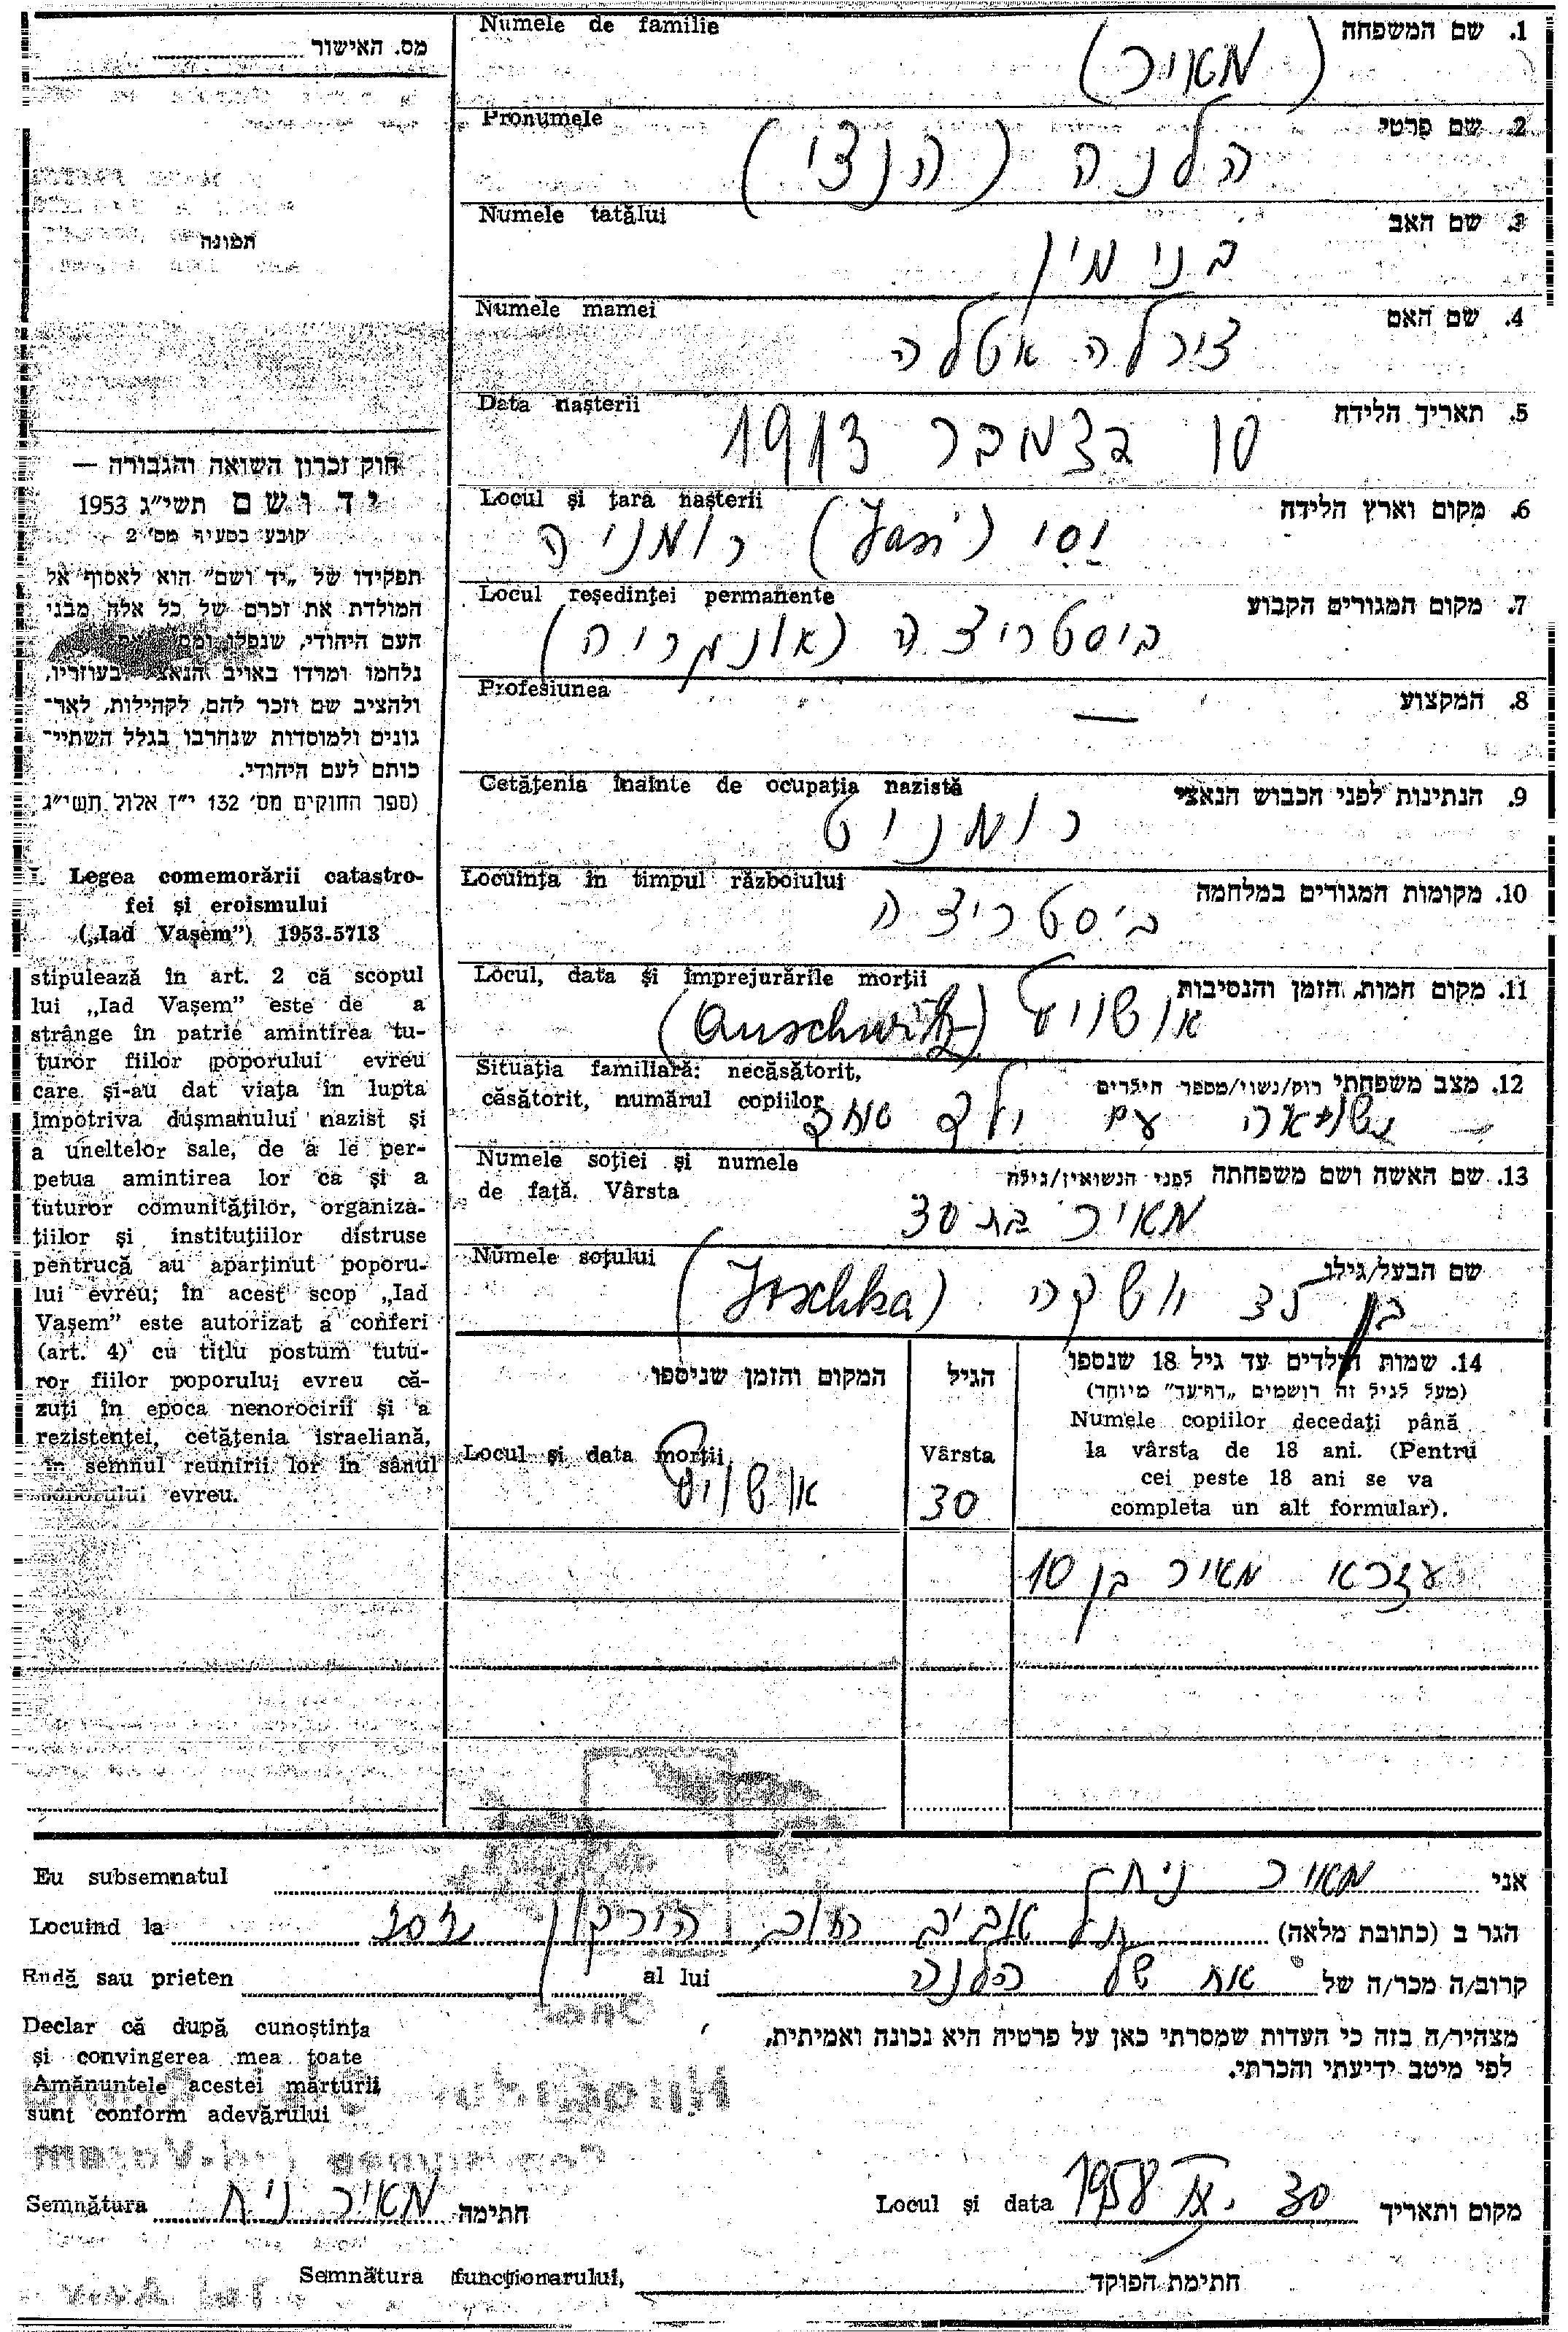 מס. האישור
תמונה
חוק זכרון השואה והגבורה —
יד ושם תשי״ג 1953
קובע בסעיף מס׳ 2
תפקידו של „יד ושם״ הוא לאסוף אל
המולדת את זכרם של כל אלה מבני
העם היהודי, שנפלו
נלחמו ומרדו באויב הנאצי ובעוזריו,
ולהציב שם וזכר להם, לקהילות, לאר־
גונים ולמוסדות שנחרבו בגלל השתיי־
כותם לעם היהודי.
(ספר החוקים מס׳ 132 י״ז אלול תשי״ג
Legea comemorării catastro-
fei și eroismului
(„Iad Vașem”) 1953-5713
stipulează în art. 2 că scopul
lui „Iad Vașem” este de a
strânge în patrie amintirea tu-
turor fiilor poporului evreu
care și-au dat viața în lupta
împotriva dușmanului nazist și
a uneltelor sale, de a le per-
petua amintirea lor ca și a
tuturor comunităților, organiza-
țiilor și instituțiilor distruse
pentrucă au aparținut poporu-
lui evreu; în acest scop „Iad
Vașem” este autorizat a conferi
(art. 4) cu titlu postum tutu-
ror fiilor poporului evreu că-
zuți în epoca nenorocirii și a
rezistenței, cetățenia israeliană,
în semnul reunirii lor în sânul
poporului evreu.
Numele de familie 1. שם המשפחה
(מאיר)
Pronumele 2. שם פרטי
הלנה (הנצי)
Numele tatălui 3. שם האב
בנימין
Numele mamei 4. שם האם
צירלה אטלה
Data nașterii 5. תאריך הלידה
10 בצמבר 1913
Locul și țara nașterii 6. מקום וארץ הלידה
יסי (Jasi) רומניה
Locul reședinței permanente 7. מקום המגורים הקבוע
ביסטריצה (אונגריה)
Profesiunea 8. המקצוע
—
Cetățenia înainte de ocupația nazistă 9. הנתינות לפני הכבוש הנאצי
רומניט
Locuința în timpul războiului 10. מקומות המגורים במלחמה
ביסטריצה
Locul, data și împrejurările morții 11. מקום המות, הזמן והנסיבות
אושויץ (Auschwitz)
Situația familiară: necăsătorit, 12. מצב משפחתי רוק/נשוי/מספר הילדים
căsătorit, numărul copiilor
נשואה עם ילד אחד
Numele soției și numele 13. שם האשה ושם משפחתה לפני הנשואין/גילה
de fată. Vârsta
מאיר בת 30
Numele soțului שם הבעל/גילו
יושקה (Joschka)
14. שמות הילדים עד גיל 18 שנספו הגיל המקום והזמן שניספו
(מעל לגיל זה רושמים „דף־עד״ מיוחד)
Numele copiilor decedați până
la vârsta de 18 ani. (Pentru Vârsta Locul și data morții
cei peste 18 ani se va
completa un alt formular).
30 אושויץ
עזרא מאיר בן 10
Eu subsemnatul מאיר אני
Locuind la תל אביב רחוב הירקון הגר ב (כתובת מלאה)
Rudă sau prieten al lui אח של הלנה קרוב/ה מכר/ה של
Declar că după cunoștința
și convingerea mea toate
Amănuntele acestei mărturii
sunt conform adevărului
מצהיר/ה בזה כי העדות שמסרתי כאן על פרטיה היא נכונה ואמיתית,
לפי מיטב ידיעתי והכרתי.
Semnătura מאיר חתימה
Locul și data 30 1958 מקום ותאריך
Semnătura funcționarului, חתימת הפוקד